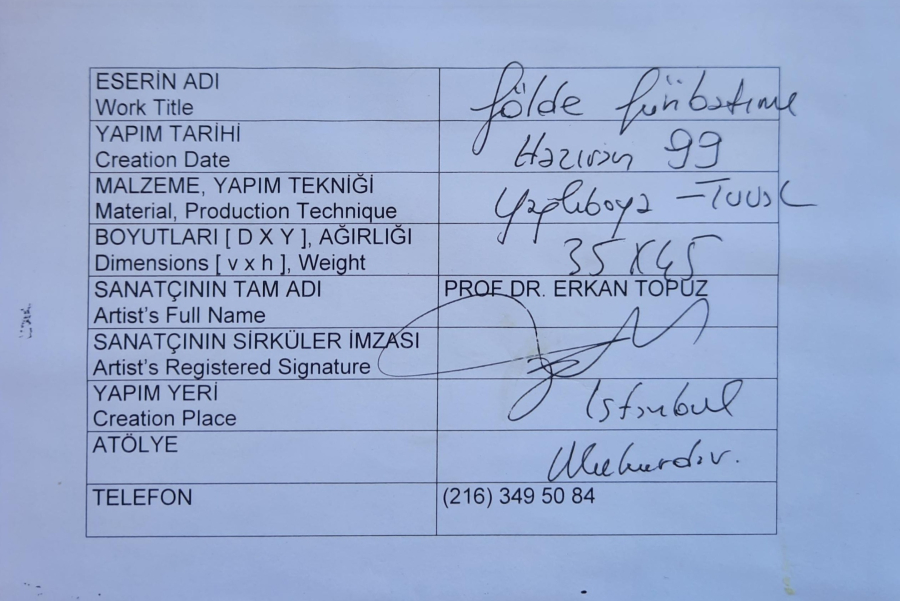 ESERİN ADI
Work Title
Gölde Günbatımı
YAPIM TARİHİ
Creation Date
Haziran 99
MALZEME, YAPIM TEKNİĞİ
Material, Production Technique
Yağlıboya - Tuval
BOYUTLARI [ D X Y ], AĞIRLIĞI
Dimensions [ v x h ], Weight
35 X 45
SANATÇININ TAM ADI
Artist's Full Name
PROF DR. ERKAN TOPUZ
SANATÇININ SİRKÜLER İMZASI
Artist's Registered Signature
YAPIM YERİ
Creation Place
İstanbul
ATÖLYE
TELEFON
(216) 349 50 84